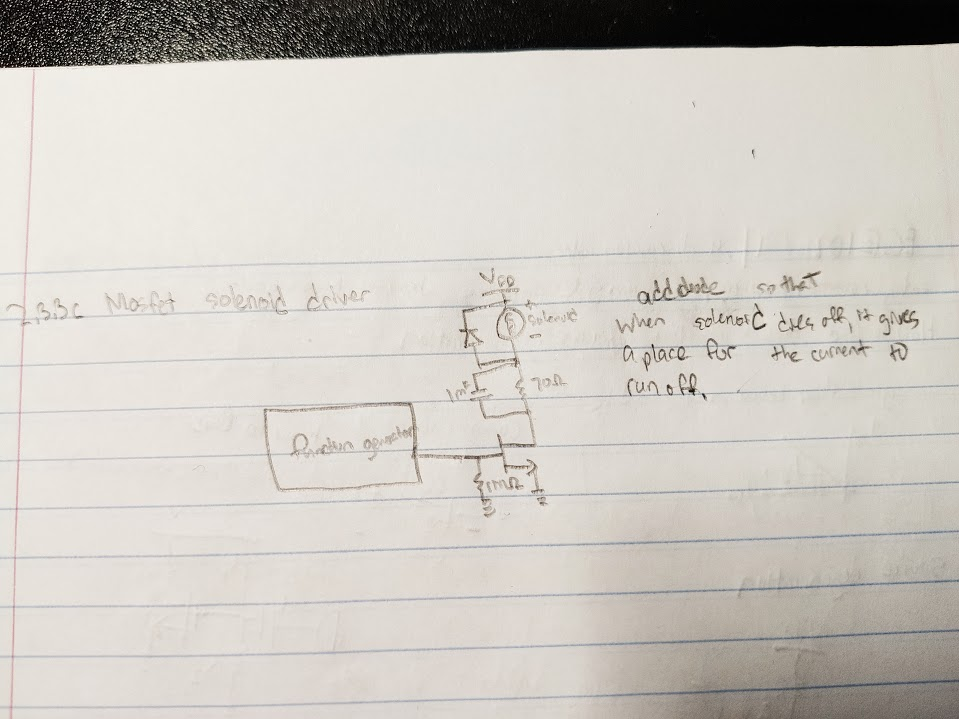 2.3.3c Mosfet solenoid driver
VDD
solenoid
+
-
1mF
70Ω
function generator
1MΩ
add diode so that
when solenoid dies off, it gives
a place for the current to
run off.